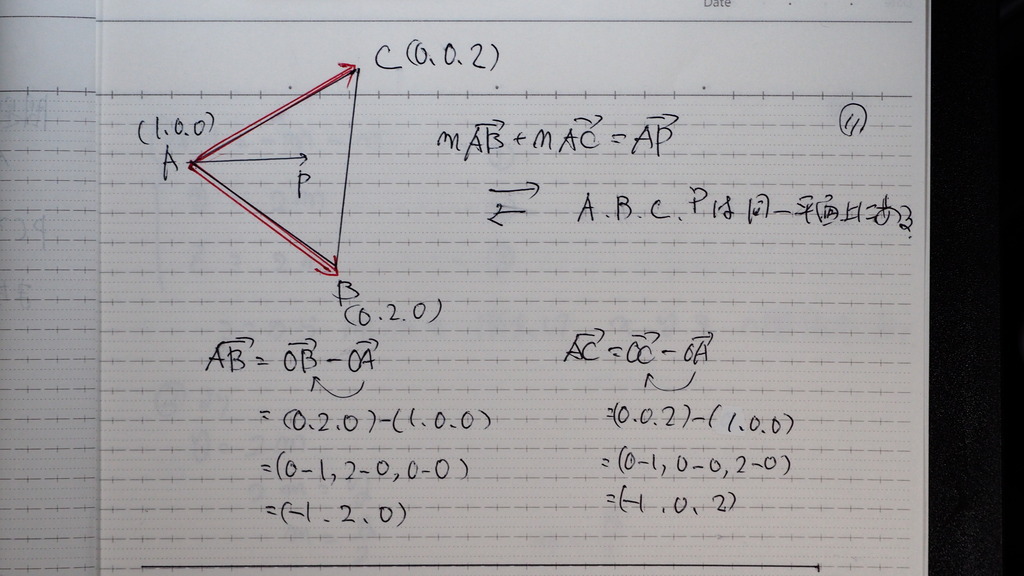 Date
C(0.0.2)
(1.0.0)
A
P
mAB + nAC = AP
⑪
A.B.C.Pは同一平面上にある
B
(0.2.0)
AB = OB - OA
= (0.2.0)-(1.0.0)
=(0-1, 2-0, 0-0)
=(-1.2.0)
AC = OC - OA
=(0.0.2)-(1.0.0)
=(0-1, 0-0, 2-0)
=(-1.0.2)